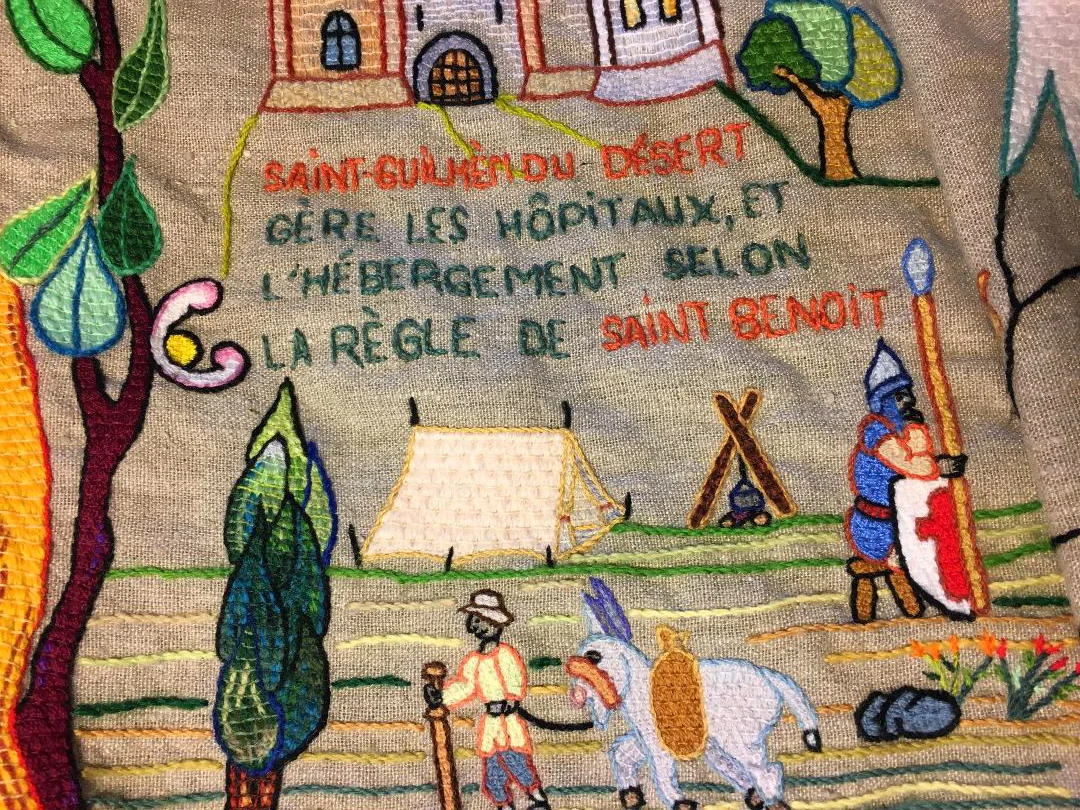 SAiNT-GUiLHÈM-DU DÉSERT
GÈRE LES HÔPiTAUX, ET
L'HÉBERGEMENT SELON
LA RÈGLE DE SAiNT BENOiT